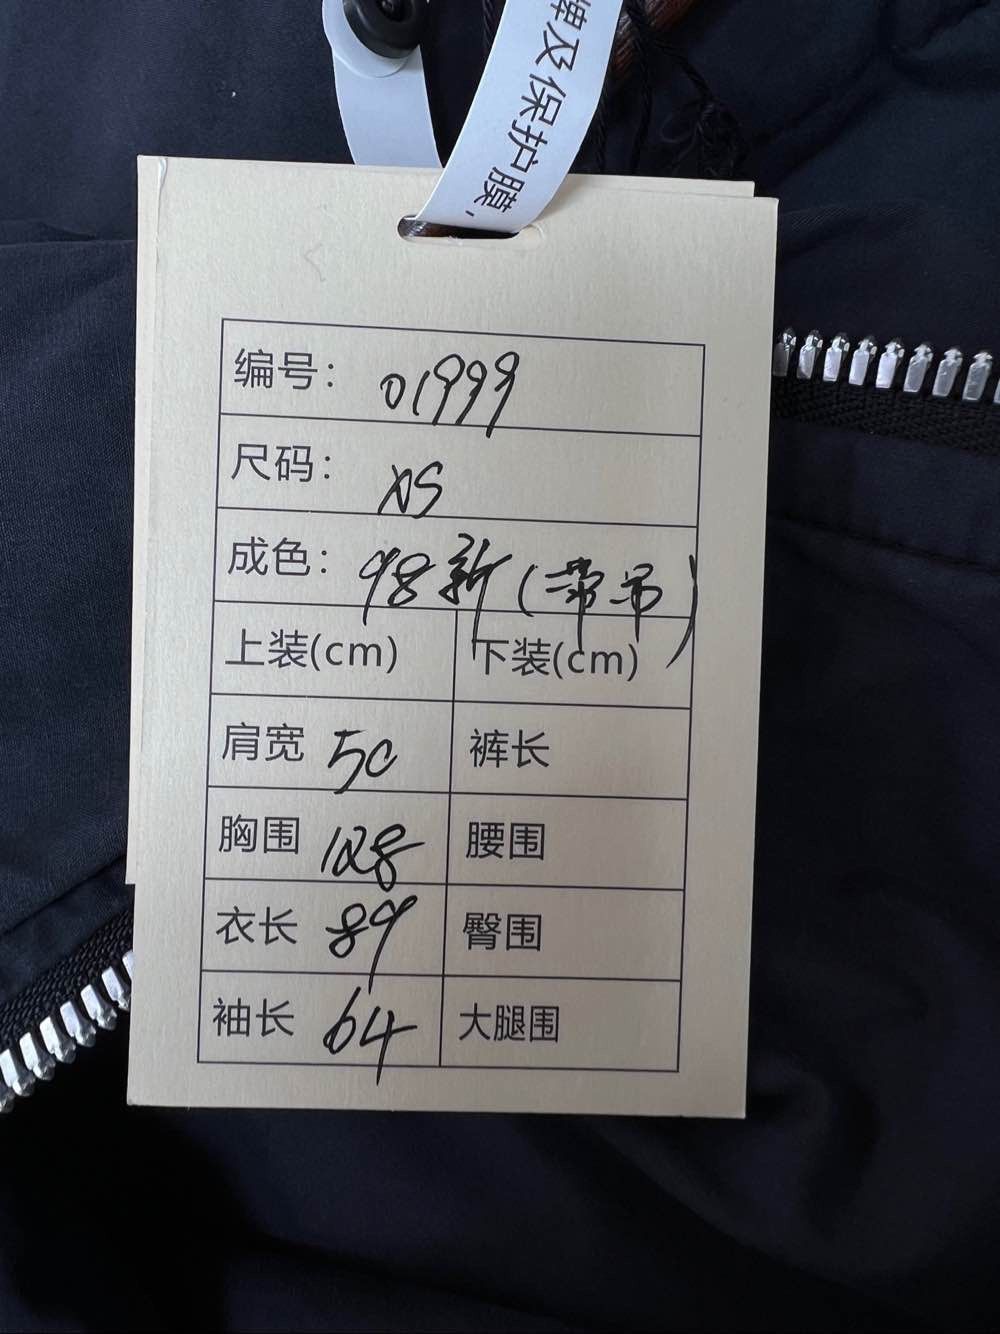 牌及保护膜,
编号: 01999
尺码: XS
成色: 98新(带吊)
上装(cm) 下装(cm)
肩宽 50 裤长
胸围 128 腰围
衣长 89 臀围
袖长 64 大腿围